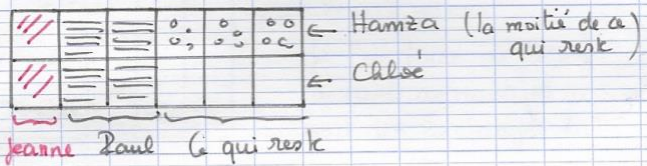 Hamza (la moitié de ce
qui reste)
Chloé
Jeanne Paul Ce qui reste